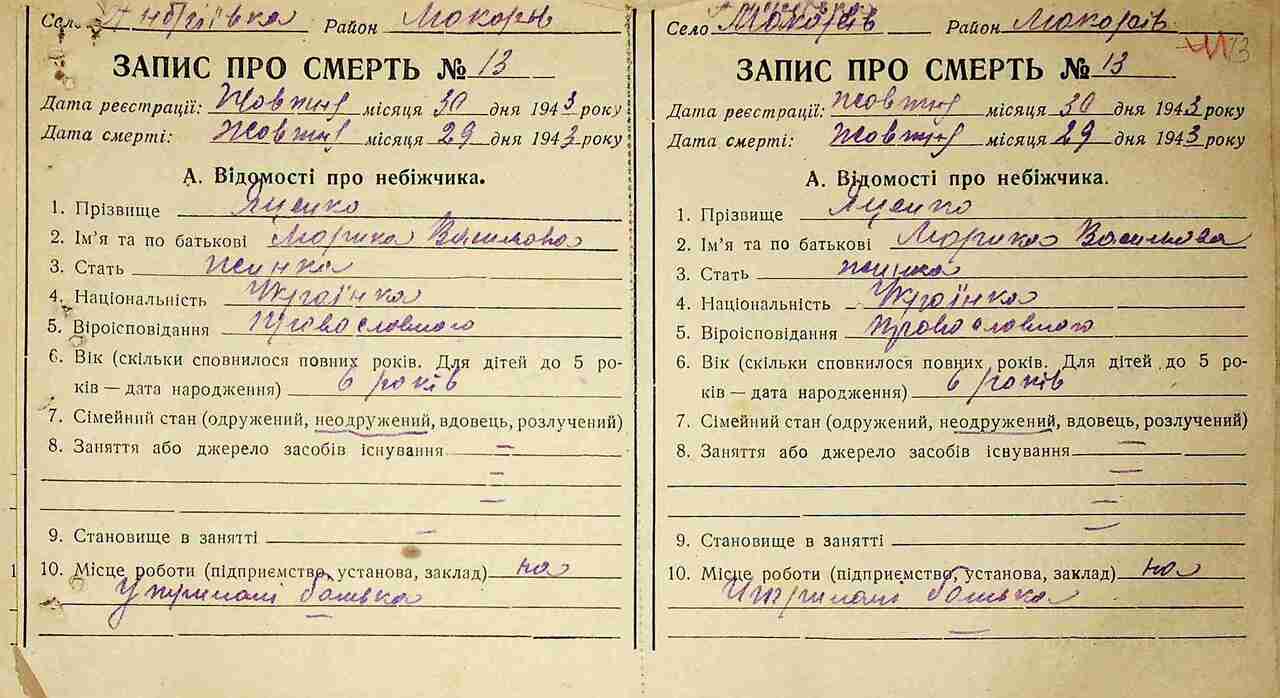 Село Андріївка Район Макорів
ЗАПИС ПРО СМЕРТЬ № 13
Дата реєстрації: Жовтня місяця 30 дня 1943 року
Дата смерті: Жовтня місяця 29 дня 1943 року
А. Відомості про небіжчика.
1. Прізвище Яценко
2. Ім'я та по батькові Марика Василова
3. Стать жинка
4. Національність Українка
5. Віроісповідання Православного
6. Вік (скільки сповнилося повних років. Для дітей до 5 ро-
ків — дата народження) 6 років
7. Сімейний стан (одружений, неодружений, вдовець, розлучений)
8. Заняття або джерело засобів існування —
9. Становище в занятті —
10. Місце роботи (підприємство, установа, заклад) на
батька
Село Макарів Район Макарів
13
ЗАПИС ПРО СМЕРТЬ № 13
Дата реєстрації: Жовтня місяця 30 дня 1943 року
Дата смерті: Жовтня місяця 29 дня 1943 року
А. Відомості про небіжчика.
1. Прізвище Яценко
2. Ім'я та по батькові Марика Васильова
3. Стать жинка
4. Національність Українка
5. Віроісповідання Православного
6. Вік (скільки сповнилося повних років. Для дітей до 5 ро-
ків — дата народження) 6 років
7. Сімейний стан (одружений, неодружений, вдовець, розлучений)
8. Заняття або джерело засобів існування —
9. Становище в занятті —
10. Місце роботи (підприємство, установа, заклад) на
батька